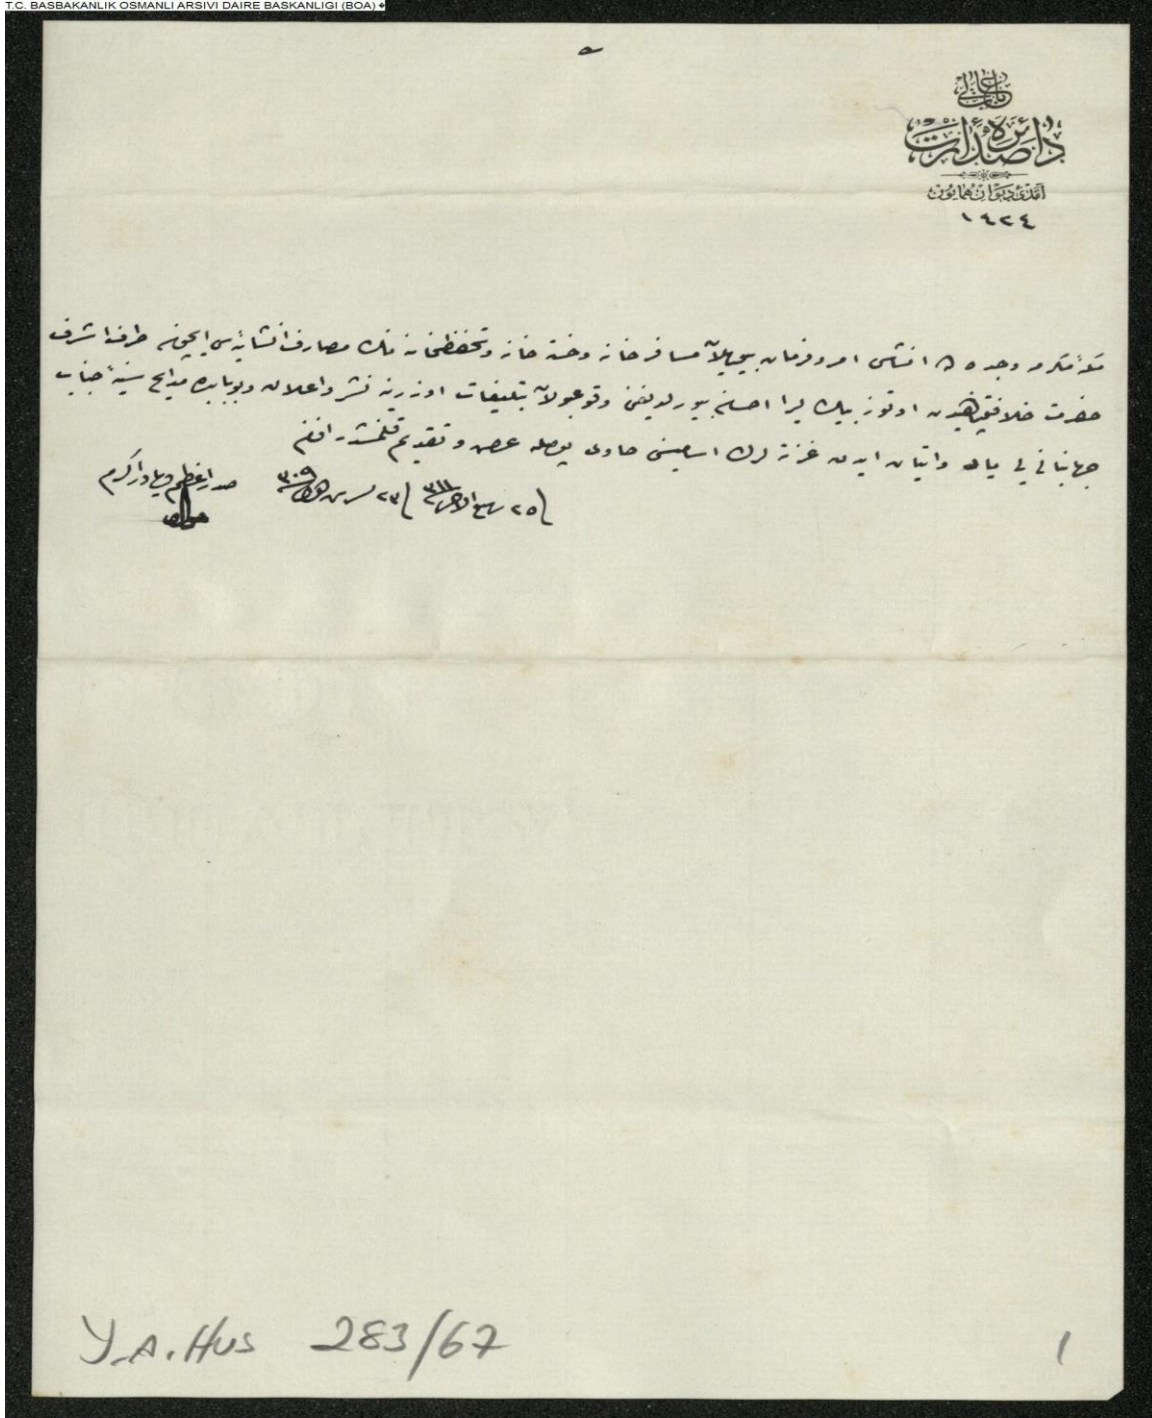 T.C. BASBAKANLIK OSMANLI ARSIVI DAIRE BASKANLIGI (BOA)
باب عالی
دائرهٔ صدارت
آمدئ دیوان همایون
١٤٢٤
مکهٔ مکرمه و جده ده انشاسی امر و فرمان بیوریلان مسافرخانه و خسته خانه و تحفظخانه نك مصارف انشائیه سی ایچون طرف اشرف
حضرت خلافتپناهیدن اوتوز بیك لیرا احسان بیورلدیغی وقوعبولان تبلیغات اوزرینه نشر و اعلان و بوبابده مدایح سنیهٔ جناب
جهانبانی یی بیان و اتیان ایدن غزته لرك اسامیسنی حاوی پوصله عرض و تقدیم قلنمشدر افندم
فی ٢٥ ربیع الآخر سنه ٣١١ فی ٢٣ تشرین اول سنه ٣٠٩ صدر اعظم ویاور اکرم
جواد
Y.A.HUS 283/67
1